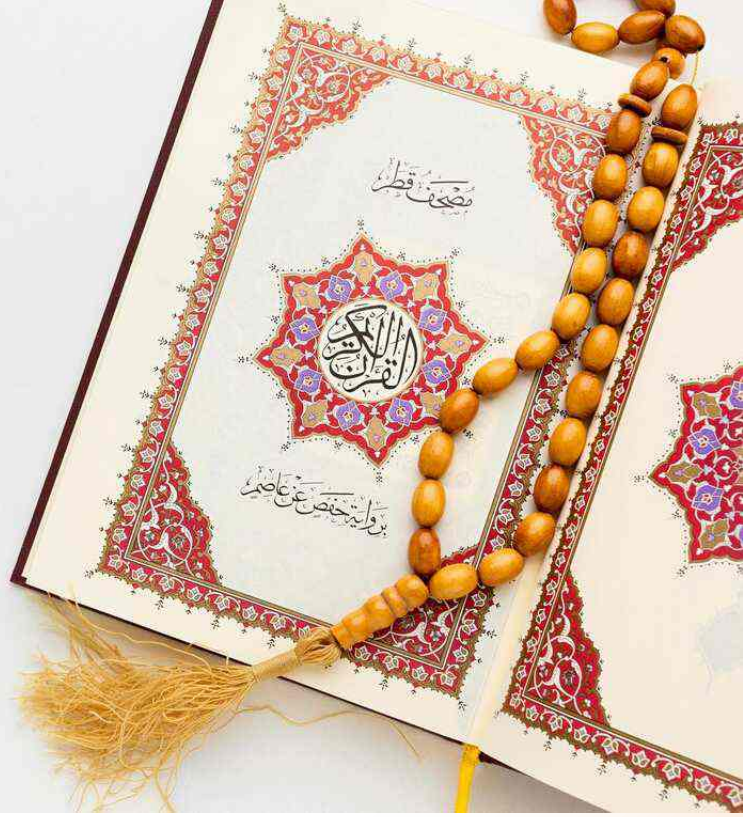 مُصْحَفُ قَطَر
القرآن الكريم
بِرِوَايَةِ حَفْصٍ عَنْ عَاصِمٍ